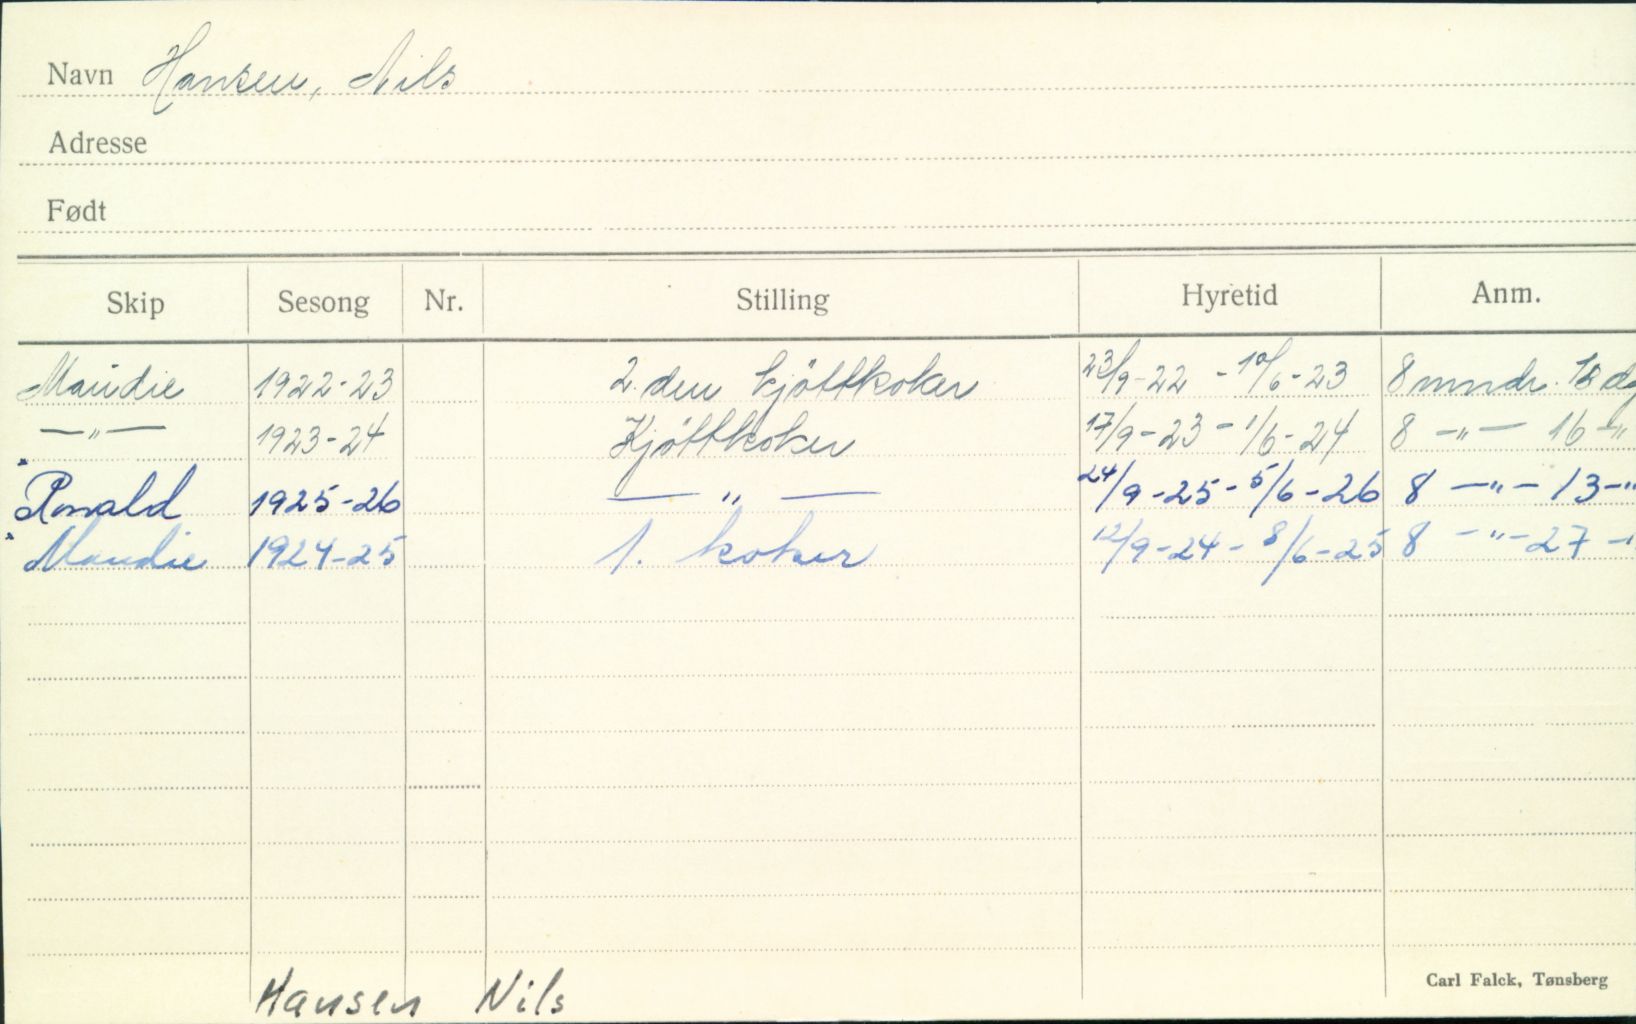 Navn Hansen, Nils
Adresse
Født
Skip Sesong Nr. Stilling Hyretid Anm.
Maudie 1922-23 2. den kjöttkoker 23/9-22 - 10/6-23 8 mndr. 18 dg
—„— 1923-24 Kjöttkoker 17/9-23 - 1/6-24 8 —„— 16 —„
Ronald 1925-26 — „ — 24/9-25 - 5/6-26 8 —„— 13 —„
Maudie 1924-25 1. koker 12/9-24 - 8/6-25 8 —„— 27 —
Carl Falck, Tønsberg
Hansen Nils